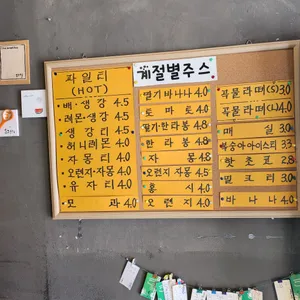 과일티
(HOT)
배·생강 4.5
레몬·생강 4.5
생강티 4.5
허니레몬 4.0
자몽티 4.0
오렌지·자몽 4.0
유자티 4.0
모과 4.0
계절별주스
딸기바나나 4.0
토마토 4.0
딸기·한라봉 4.8
한라봉 4.8
자몽 4.8
오렌지자몽 4.5
홍시 4.0
오렌지 4.0
곡물라떼(S) 3.0
곡물라떼(L) 4.0
매실 3.0
복숭아아이스티 3.3
핫초코 2.8
밀크티 3.0
바나나 4.0